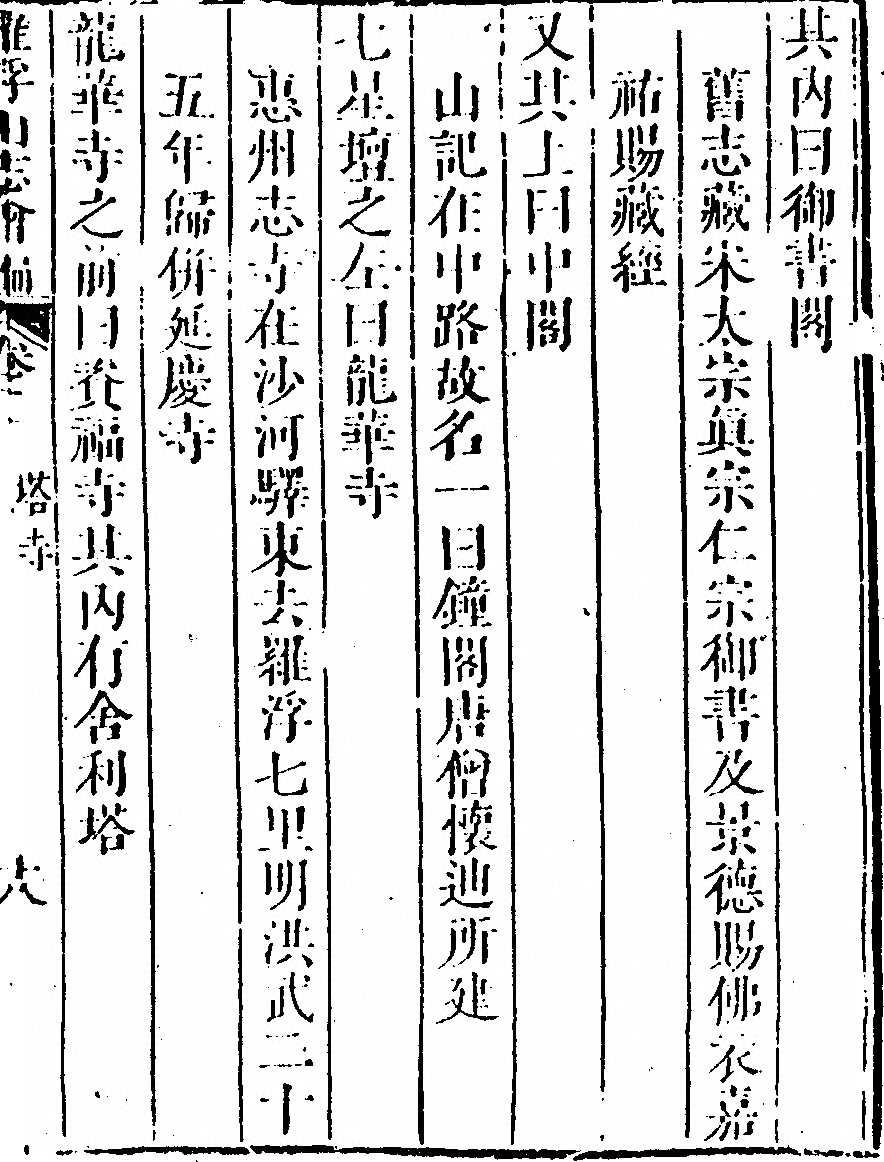 其內曰御書閣
舊志藏宋太宗真宗仁宗御書及景德賜佛衣嘉
祐賜藏經
又其上曰中閣
山記在中路故名一曰鐘閣唐僧懷迪所建
七星壇之左曰龍華寺
惠州志寺在沙河驛東去羅浮七里明洪武二十
五年歸併延慶寺
龍華寺之前曰資福寺其內有舍利塔
羅浮山志會編 卷
塔寺
六